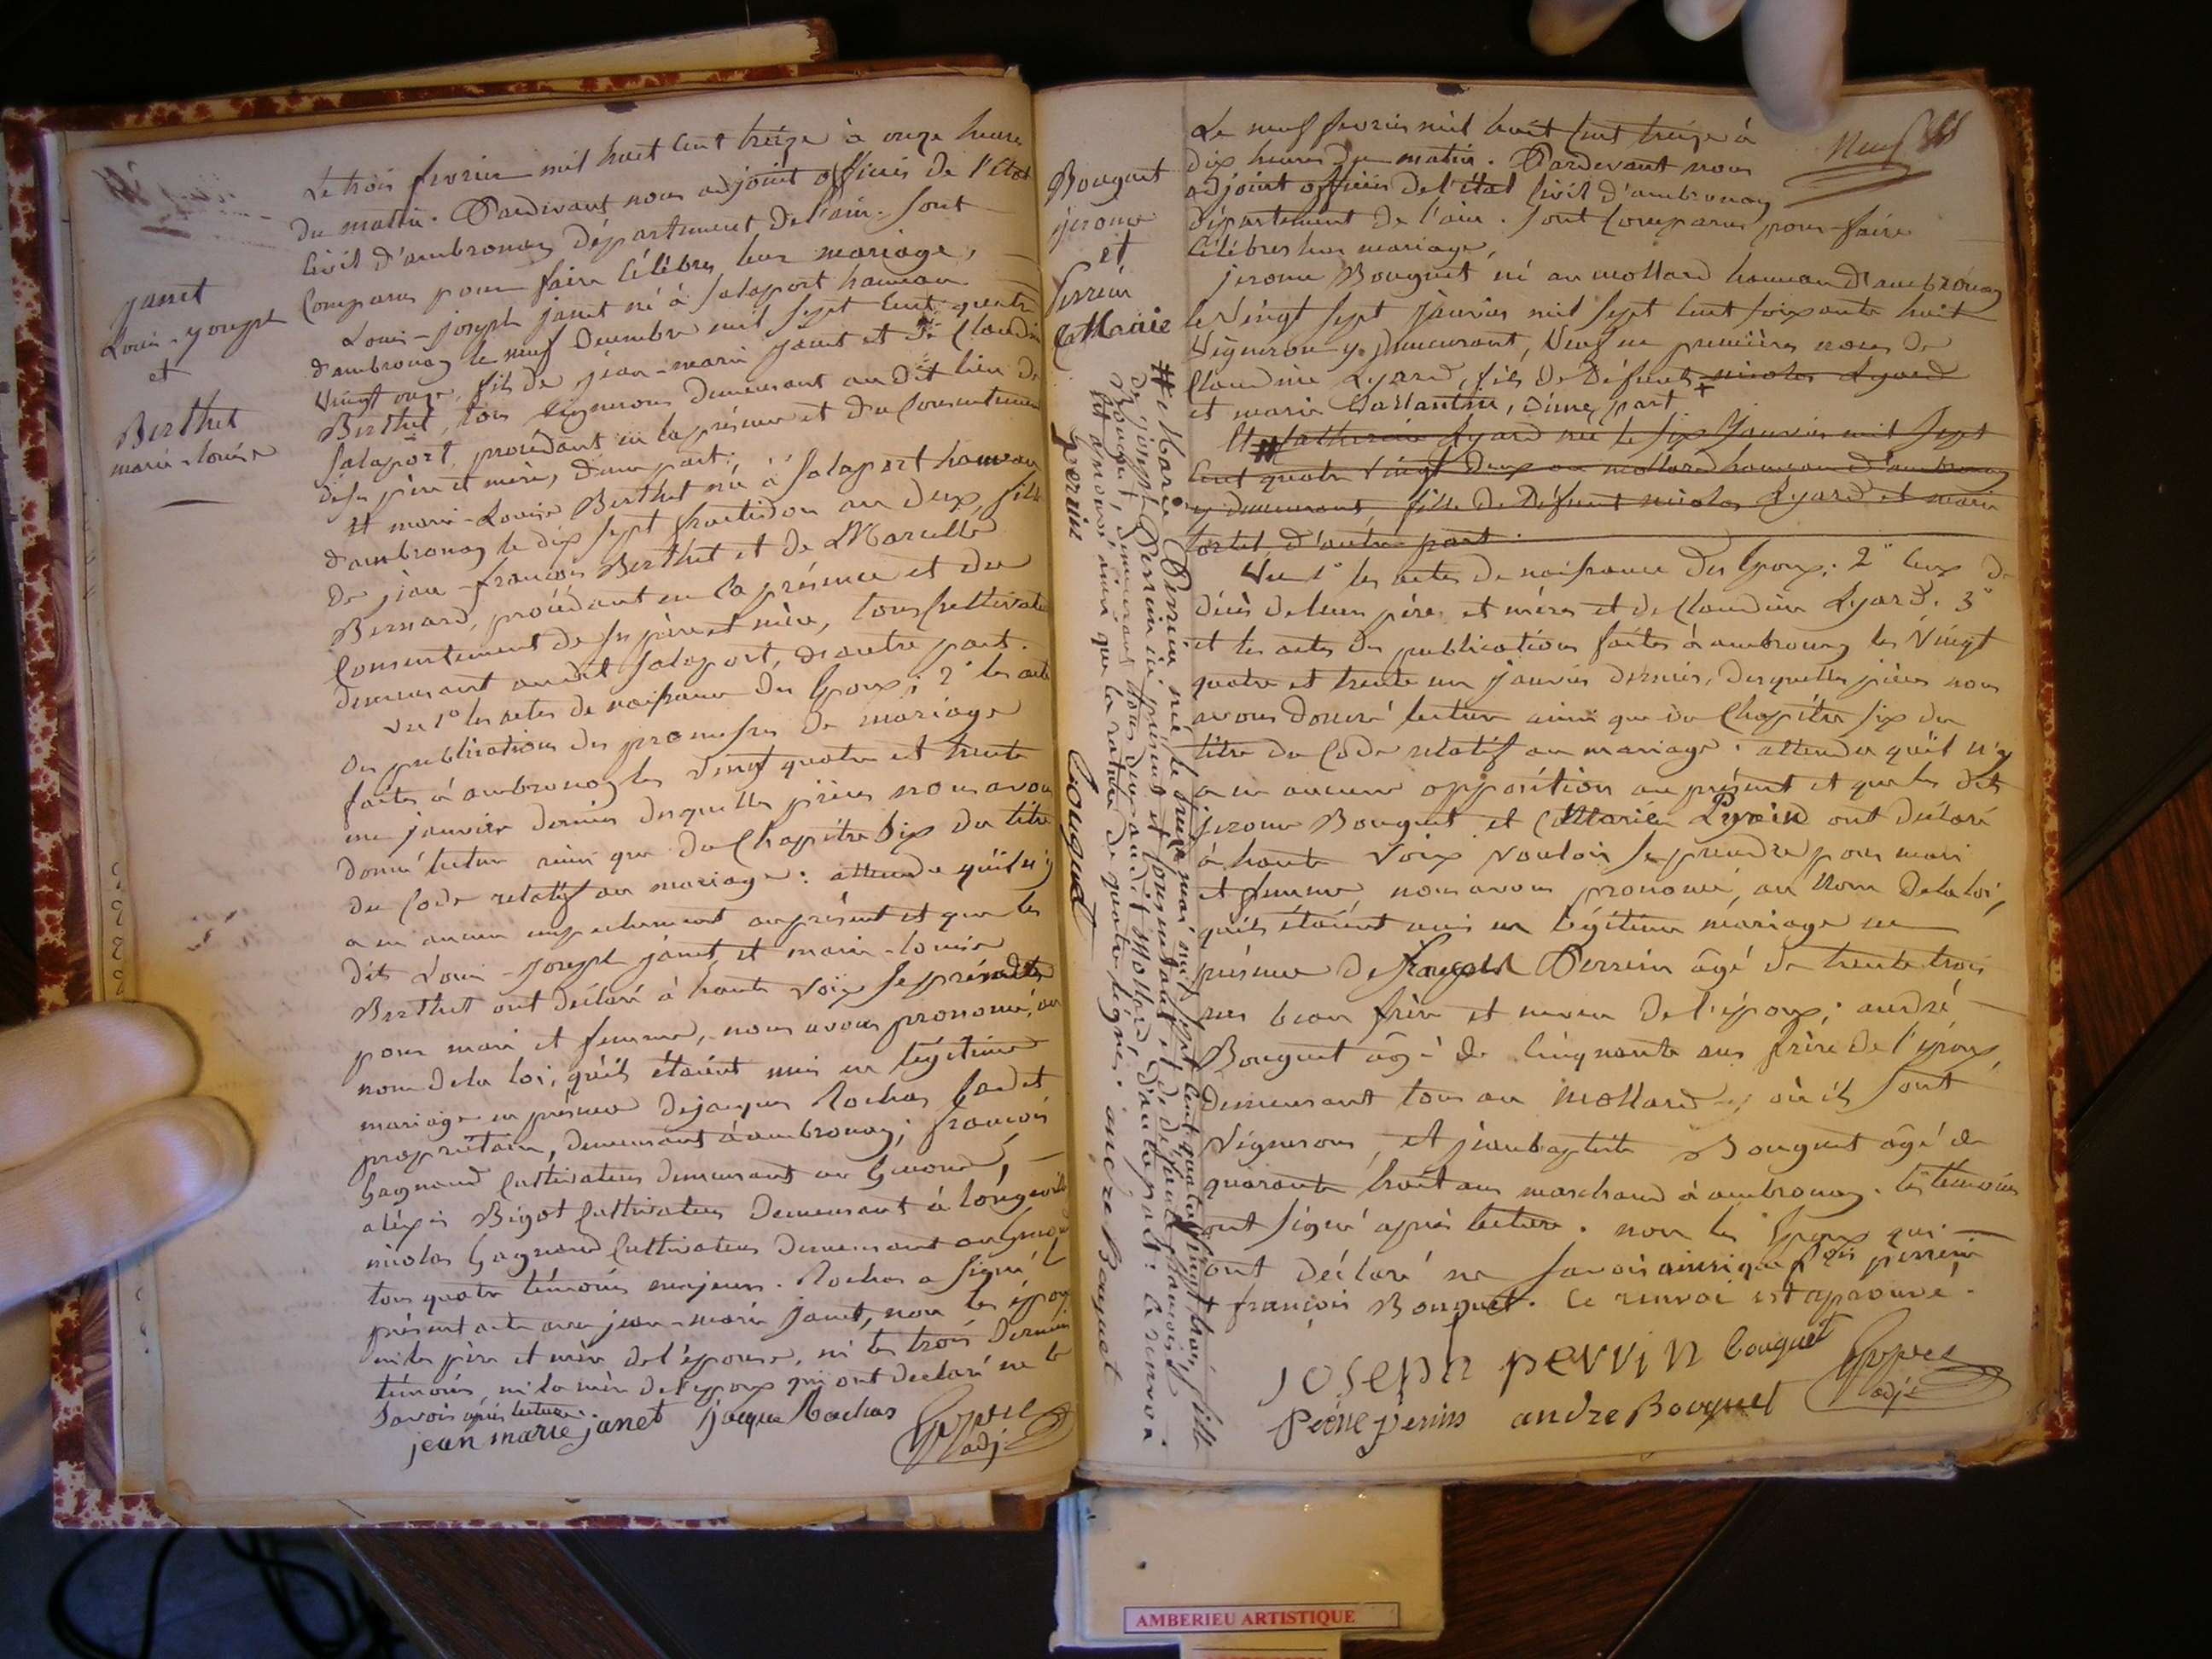 janet
Louis-joseph
et
Berthet
marie-louise
Le trois fevrier mil huit cent treize à onze heures
du matin. Pardevant nous adjoint officier de l'état
civil d'ambronay département de l'ain. sont
comparus pour faire célébrer leur mariage,
Louis-joseph janet né à salaport hameau
d'ambronay le neuf decembre mil sept cent quatre
vingt onze, fils de jean-marie janet et de claudine
Berthet, tous vignerons demeurant au dit lieu de
salaport, procédant en la présence et du consentement
de ses père et mère, d'une part;
et marie-Louise Berthet née à salaport hameau
d'ambronay le dix sept fructidor an deux, fille
de jean-françois Berthet et de Marcelle
Bernard, procédant en la présence et du
consentement de ses père et mère, tous cultivateurs
demeurant audit salaport, d'autre part.
Vu 1° les actes de naissance des époux; 2° les actes
de publications des promesses de mariage
faites à ambronay les vingt quatre et trente
un janvier dernier desquelles pièces nous avons
donné lecture ainsi que du chapitre six du titre
du code relatif au mariage: attendu qu'il n'y
a eu aucun empechement au présent et que les
dits Louis-joseph janet, et marie-louise
Berthet ont déclaré à haute voix se prendre
pour mari et femme, nous avons prononcé, au
nom de la loi, qu'ils étaient unis en légitime
mariage en présence de jacques Rochas
propriétaire, demeurant à ambronay; françois
Gagnaud cultivateur demeurant au
alexis Bigot cultivateur demeurant à longeville
nicolas Gagnaud cultivateur demeurant au
tous quatre témoins majeurs. Rochas a signé le
présent acte avec jean-marie janet, non les époux
ni les père et mère de l'épouse, ni les trois derniers
témoins, ni la mère de l'époux qui ont declaré ne le
savoir après lecture.
jean marie janet jacque Rochas
adj
Bouguet
jerome
et
Perrin
Marie
Neuf
Le neuf fevrier mil huit cent treize à
dix heures du matin. Pardevant nous
adjoint officier de l'état civil d'ambronay
département de l'ain. sont comparus pour faire
célébrer leur mariage,
jerome Bouguet né au mollard hameau d'ambronay
le vingt sept janvier mil sept cent soixante huit
vigneron y demeurant, veuf en premières noces de
claudine Lyard, fils de défunts + nicolas Lyard
et marie Gallantin, d'une part
et # catherine Lyard née le six janvier mil sept
cent quatre vingt deux au mollard hameau d'ambronay
y demeurant fille de défunt nicolas Lyard et marie
d'autre part.
Vu 1° les actes de naissance des époux; 2° ceux de
décès de leurs père et mères et de claudine Lyard. 3°
et les actes des publications faites à ambronay les vingt
quatre et trente un janvier dernier, desquelles pièces nous
avons donné lecture ainsi que du chapitre six du
titre du code relatif au mariage. attendu qu'il n'y
a eu aucune opposition au présent et que les dits
jerome Bouguet et Marie Perrin ont déclaré
à haute voix vouloir se prendre pour mari
et femme, nous avons prononcé, au nom de la loi,
qu'ils étaient unis en légitime mariage en
présence de joseph Perrin âgé de trente trois
ans beau frère et neveu de l'époux; andré
Bouguet âgé de cinquante ans frère de l'époux,
demeurant tous au mollard, où ils sont
vignerons, et jeanbaptiste Bouguet âgé de
quarante huit ans marchand à ambronay. les témoins
ont signé après lecture. non les époux qui
ont déclaré ne savoir ainsi que perrin
+ françois Bouguet. Ce renvoi est aprouvé.
joseph perrin bouguet
andre Bouguet
adj
# Marie Perrin née le treize mai mil sept cent quatre vingt trois, fille
de joseph Perrin ici présent et consentant et de défunte françoise
Bouguet, demeurant tous deux audit Mollard, d'autre part. ce renvoi
est aprouvé ainsi que la rature de quatre lignes. andre Bouguet
perin
bouguet
AMBERIEU ARTISTIQUE